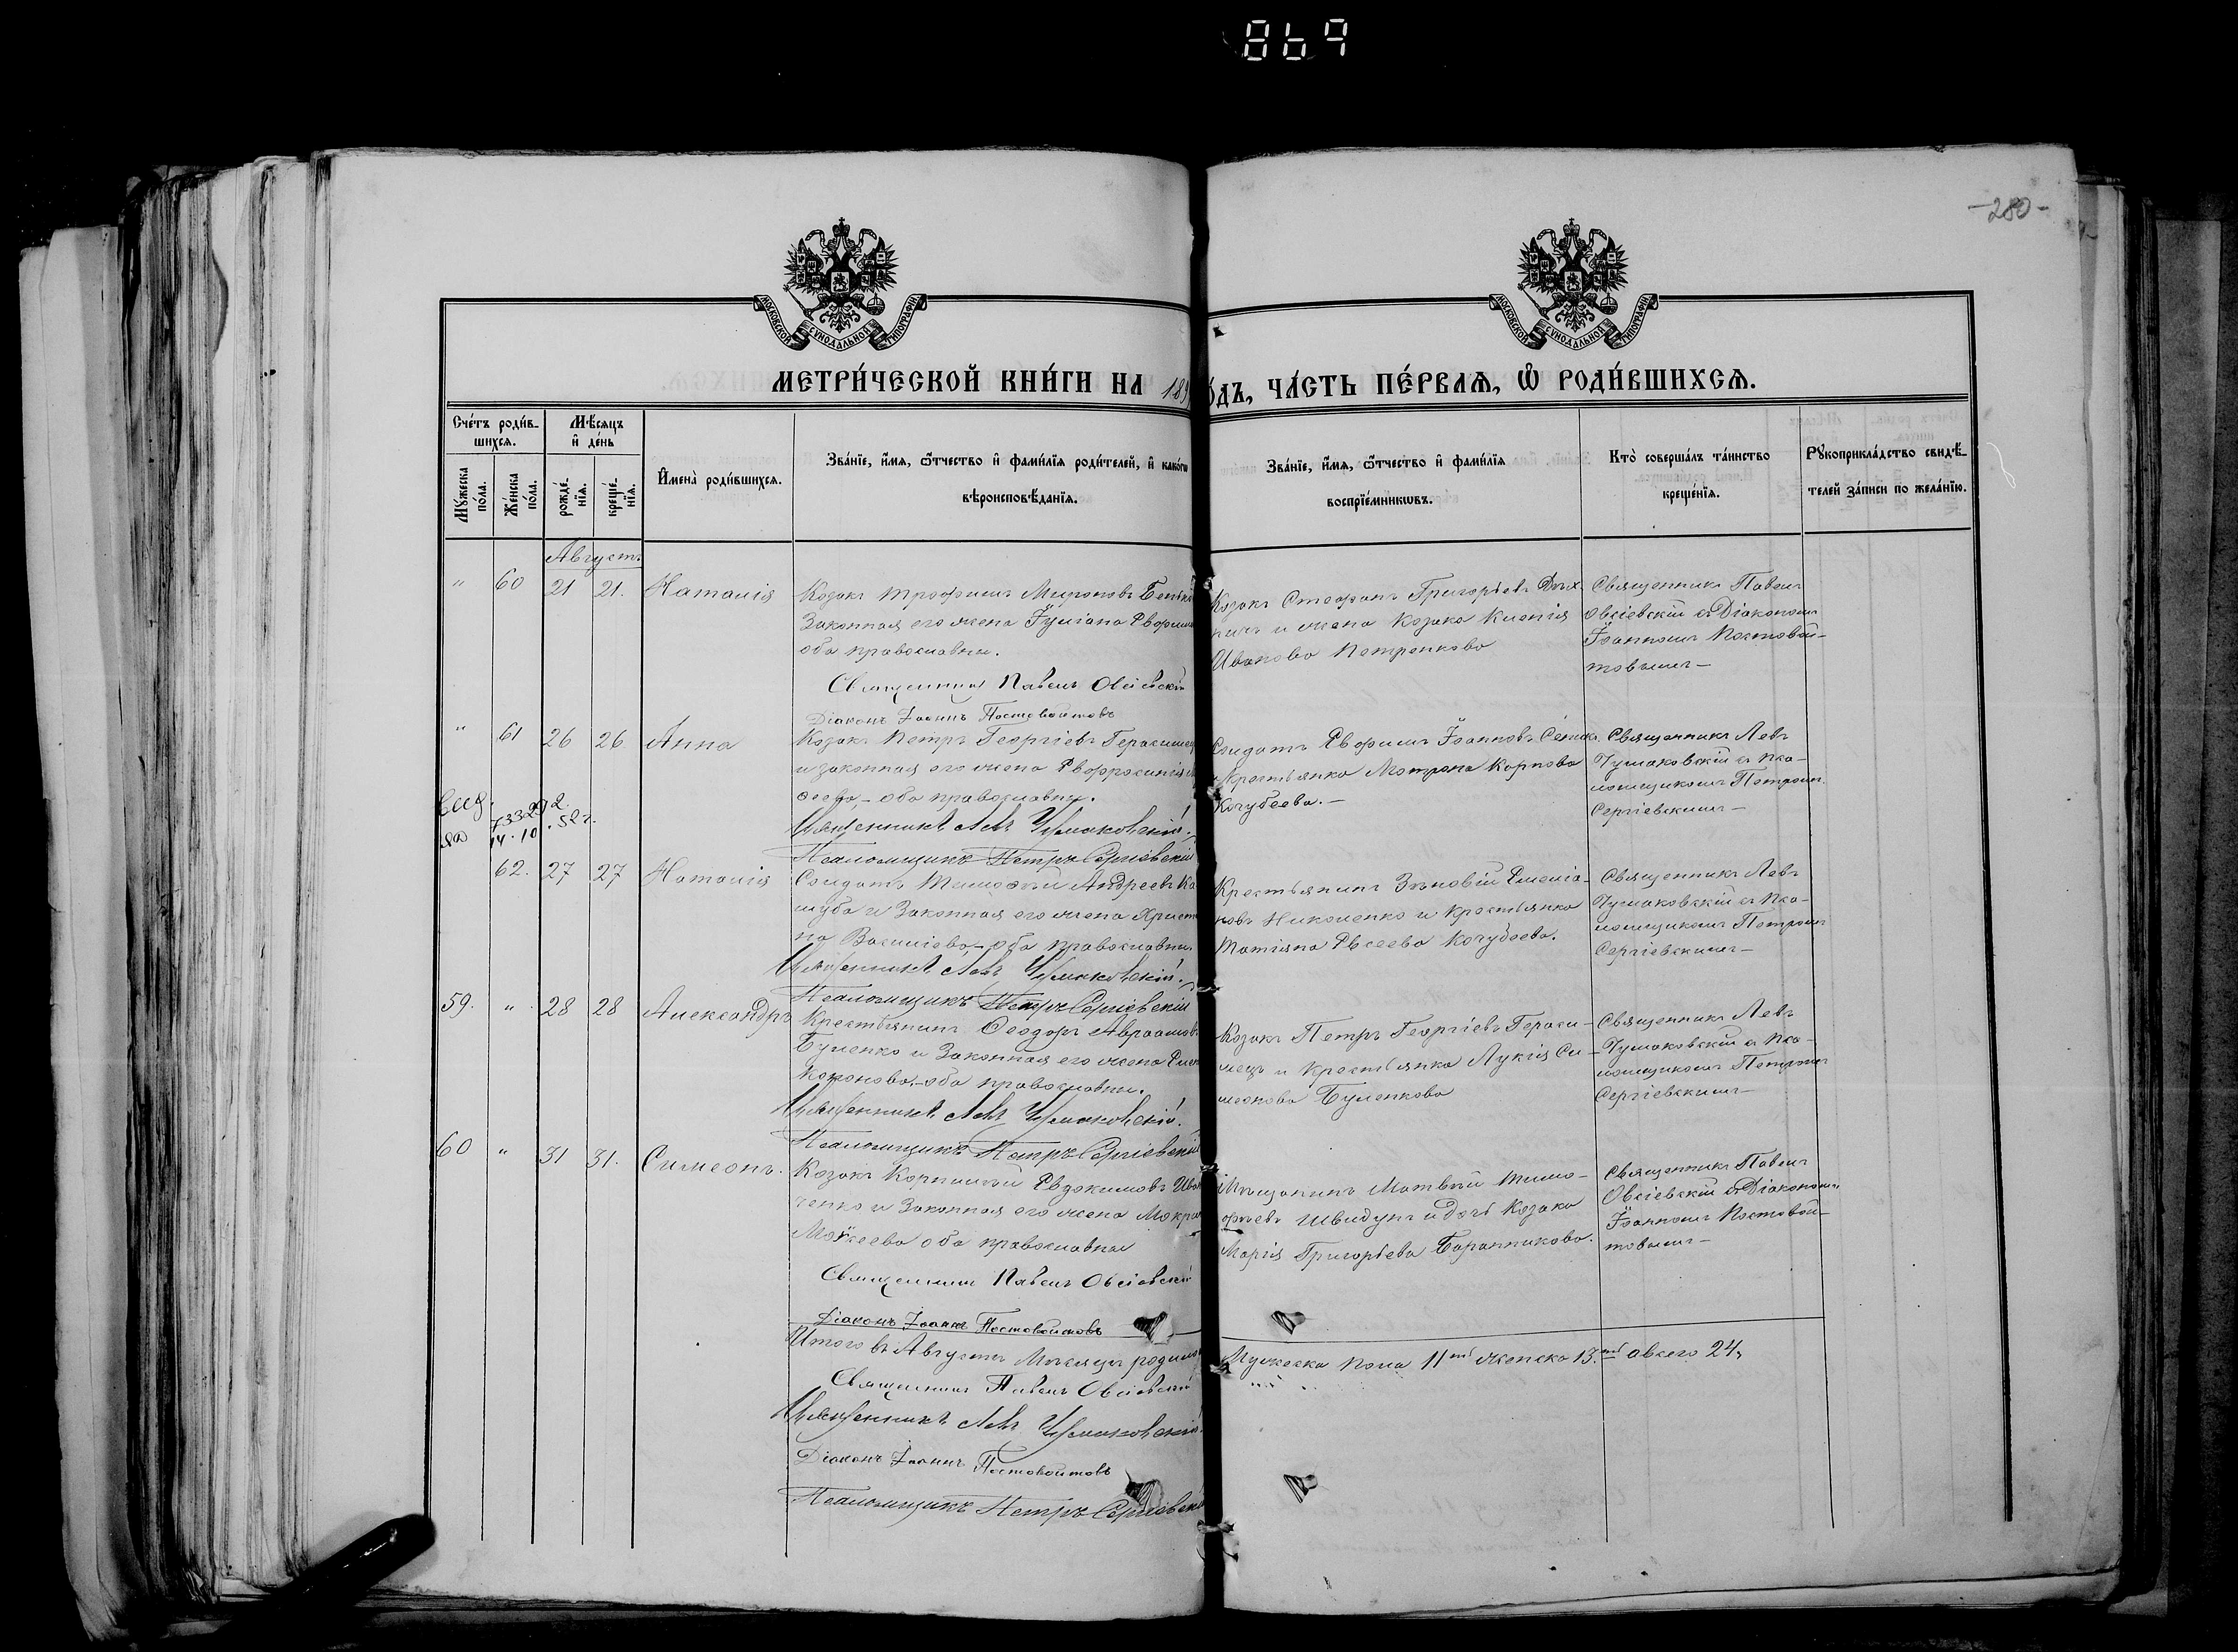 869
-280-
МОСКОВСКОЙ СѴНОДАЛЬНОЙ ТИПОГРАФІИ
МОСКОВСКОЙ СѴНОДАЛЬНОЙ ТИПОГРАФІИ
МЕТРИ́ЧЕСКОЙ КНИ́ГИ НА 189
ÓДЪ, ЧА́СТЬ ПЕ́РВАѦ, Ѽ РОДИ́ВШИХСѦ.
Сче́тъ роди́в-
шихсѧ.
Мѣ́сѧцъ
и҆ де́нь
Мꙋ́жеска по́ла.
Же́нска по́ла.
рожде́-
нїѧ.
креще́-
нїѧ.
И҆мена̀ роди́вшихсѧ.
Зва́нїе, и҆́мѧ, ѻ҆́тчество и҆ фами́лїѧ роди́телей, и҆ како́гѡ
вѣроисповѣ́данїѧ.
Зва́нїе, и҆́мѧ, ѻ҆́тчество и҆ фами́лїѧ
воспрїе́мникѡвъ.
Кто̀ соверша́лъ та́инство
креще́нїѧ.
Рꙋкоприкла́дство свидѣ́-
телей за́писи по жела́нїю.
Августъ
" 60 21 21. Наталія
Козакъ Трофимъ Мироновъ
Законная его жена Іуліана Евфим
оба православны.
Священникъ Павелъ Овсіевскій
Діаконъ Іоаннъ Постовойтовъ
Козакъ Стефанъ Григорьевъ
и жена козака Ксенія
Иванова Петренкова
Священникъ Павелъ
Овсіевскій съ Діакономъ
Іоанномъ Постовой-
товымъ—
" 61 26 26 Анна
Козакъ Петръ Георгіевъ Герасимец
и законная его жена Евфросинія
сеева,- оба православны.
Священникъ Левъ Чумаковскій.
Псаломщикъ Петръ Сергіевскій
Солдатъ Евфимъ Іоанновъ
и крестьянка Матрона Карпова
Кочубеева.—
Священникъ Левъ
Чумаковскій съ пса-
ломщикомъ Петромъ
Сергіевскимъ—
14.10.52г.
62. 27 27 Наталія
Солдатъ Тимофей Андреевъ Ка
шуба и Законная его жена Христи
на Васильева,- оба православны
Священникъ Левъ Чумаковскій.
Псаломщикъ Петръ Сергіевскій
Крестьянинъ Зѣновій Емелья-
новъ Николенко и крестьянка
Татіана Евсеева Кочубеева.
Священникъ Левъ
Чумаковскій съ пса-
ломщикомъ Петромъ
Сергіевскимъ—
59. " 28 28 Александръ
Крестьянинъ Ѳеодоръ Авраамовъ
Буленко и Законная его жена Елен
Кононова.-оба православны.
Священникъ Левъ Чумаковскій.
Псаломщикъ Петръ Сергіевскій
Козакъ Петръ Георгіевъ Гераси-
мецъ и крестьянка Лукія Си-
меонова Буленкова
Священникъ Левъ
Чумаковскій съ пса-
ломщикомъ Петромъ
Сергіевскимъ—
60 " 31 31. Симеонъ.
Козакъ Корнилій Евдокимовъ Ива
ченко и Законная его жена Мокри
Моѵсеева оба православны
Священникъ Павелъ Овсіевскій
Діаконъ Іоаннъ Постовойтовъ
Мѣщанинъ Матвѣй Тимо-
фѣевъ Швидунъ и дочь козака
Марія Григорьева Баранникова.
Священникъ Павелъ
Овсіевскій съ Діакономъ
Іоанномъ Постовой-
товымъ—
Итого въ Августѣ Мѣсяцѣ родилось
Мужеска пола 11ть женска 13ть а всего 24,
Священникъ Павелъ Овсіевскій
Священникъ Левъ Чумаковскій
Діаконъ Іоаннъ Постовойтовъ
Псаломщикъ Петръ Сергіевскій